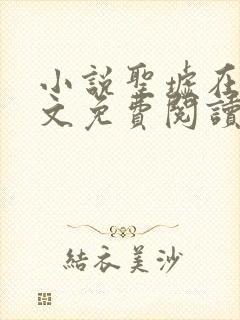 小説聖墟在
文免費閱讀
結衣美沙